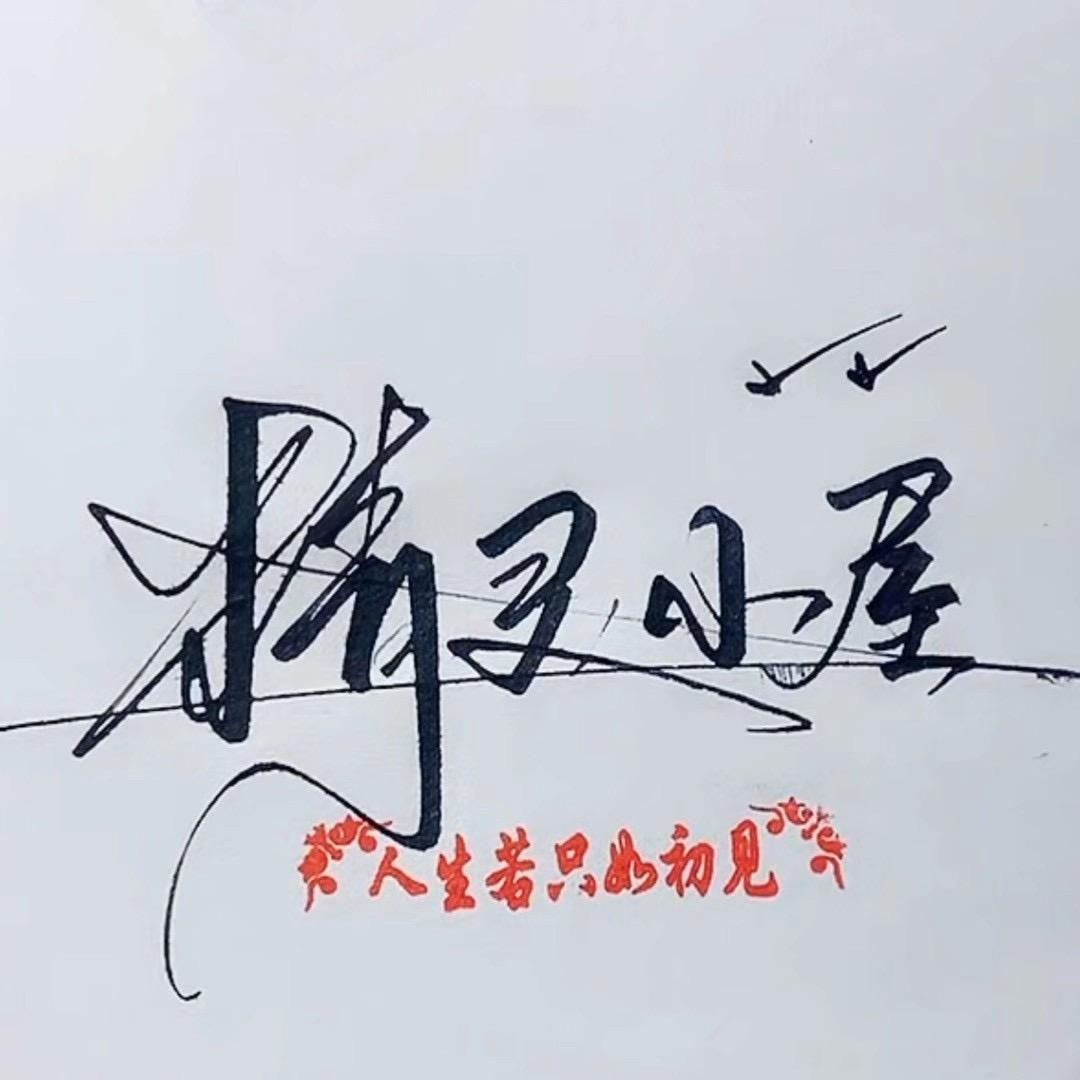 精灵小屋
人生若只如初见